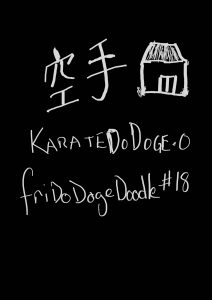 空手
KARATEDODOGE.O
friDoDogeDoodle#18